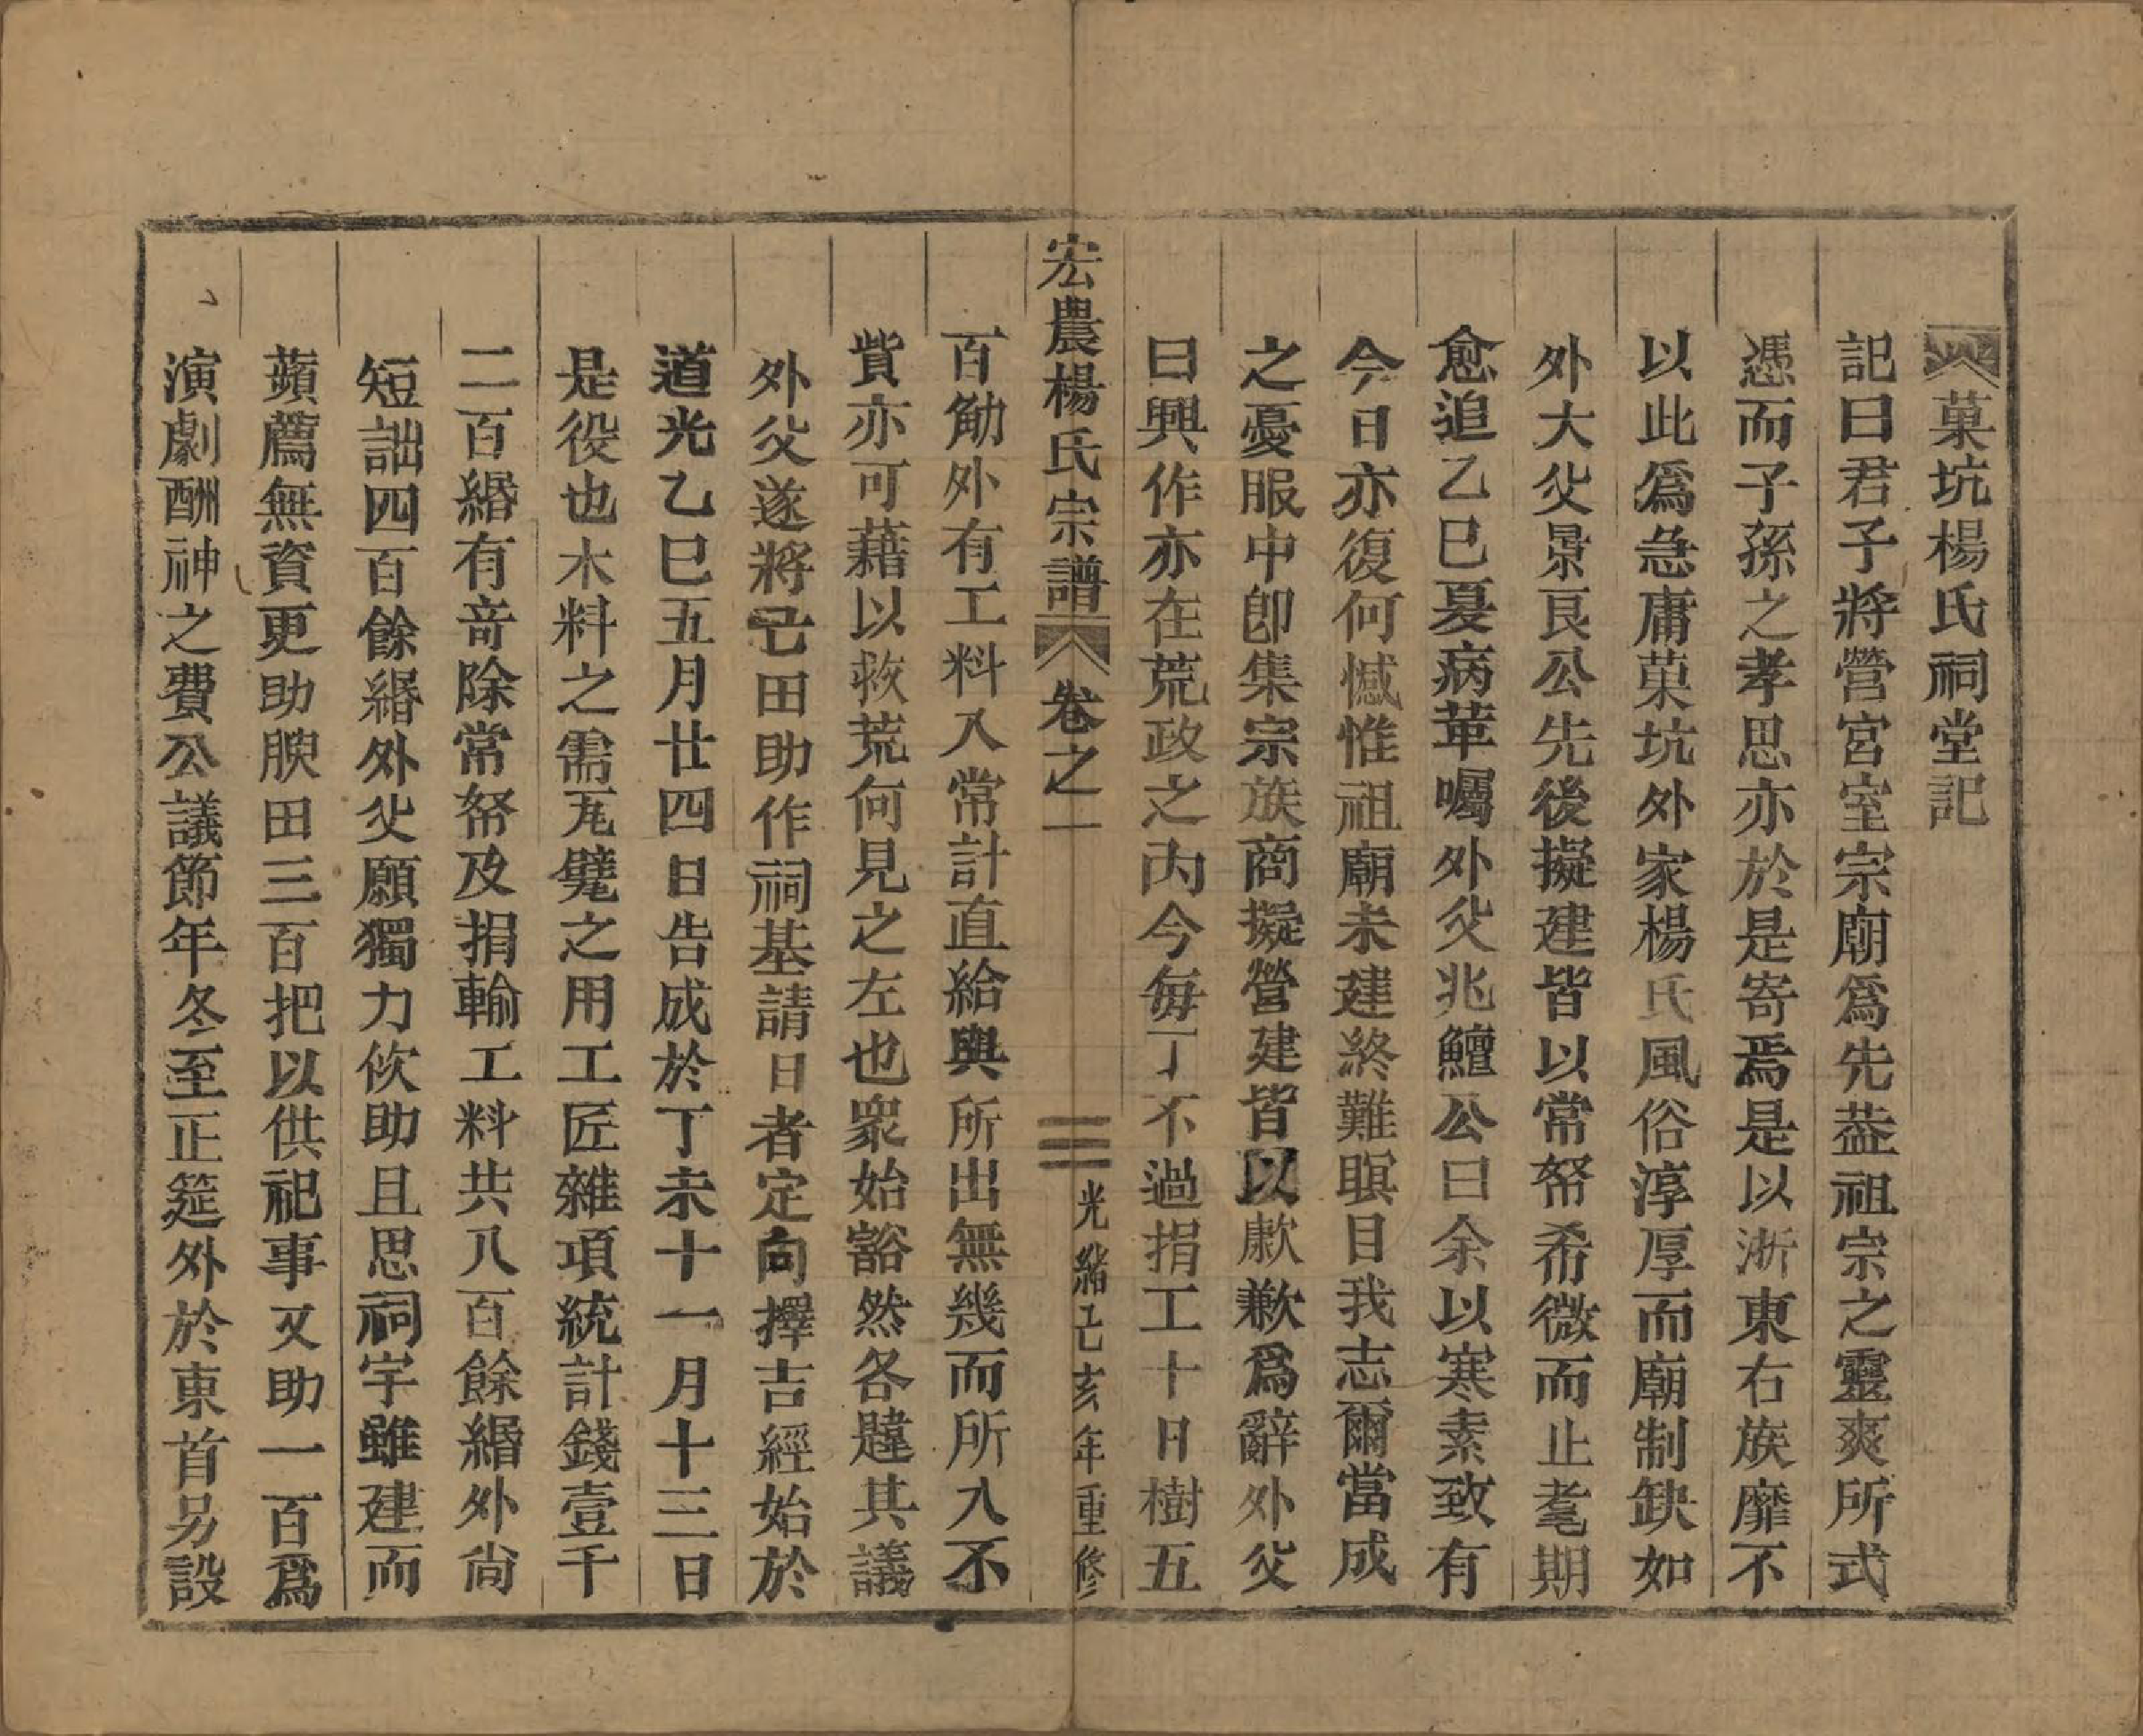 菓坑楊氏祠堂記
記曰君子將營宮室宗廟爲先葢祖宗之靈爽所式
憑而子孫之孝思亦於是寄焉是以浙東右族靡不
以此爲急庸菓坑外家楊氏風俗淳厚而廟制缺如
外大父景良公先後擬建皆以常帑希微而止耄期
愈追乙巳夏病革囑外父兆鱣公曰余以寒素致有
今日亦復何憾惟祖廟未建終難瞑目我志爾當成
之憂服中卽集宗族商擬營建皆以歉歉爲辭外父
曰興作亦在荒政之內今每丁不過捐工十日樹五
宏農楊氏宗譜 卷之一 三 光緒己亥年重修
百觔外有工料入常計直給與所出無幾而所入不
貲亦可藉以救荒何見之左也衆始豁然各韙其議
外父遂將已田助作祠基請日者定向擇吉經始於
道光乙巳五月廿四日告成於丁未十一月十三日
是役也木料之需瓦甓之用工匠雜項統計錢壹千
二百緡有奇除常帑及捐輸工料共八百餘緡外尙
短詘四百餘緡外父願獨力佽助且思祠宇雖建而
蘋薦無資更助腴田三百把以供祀事又助一百爲
演劇酬神之費公議節年冬至正筵外於東首另設